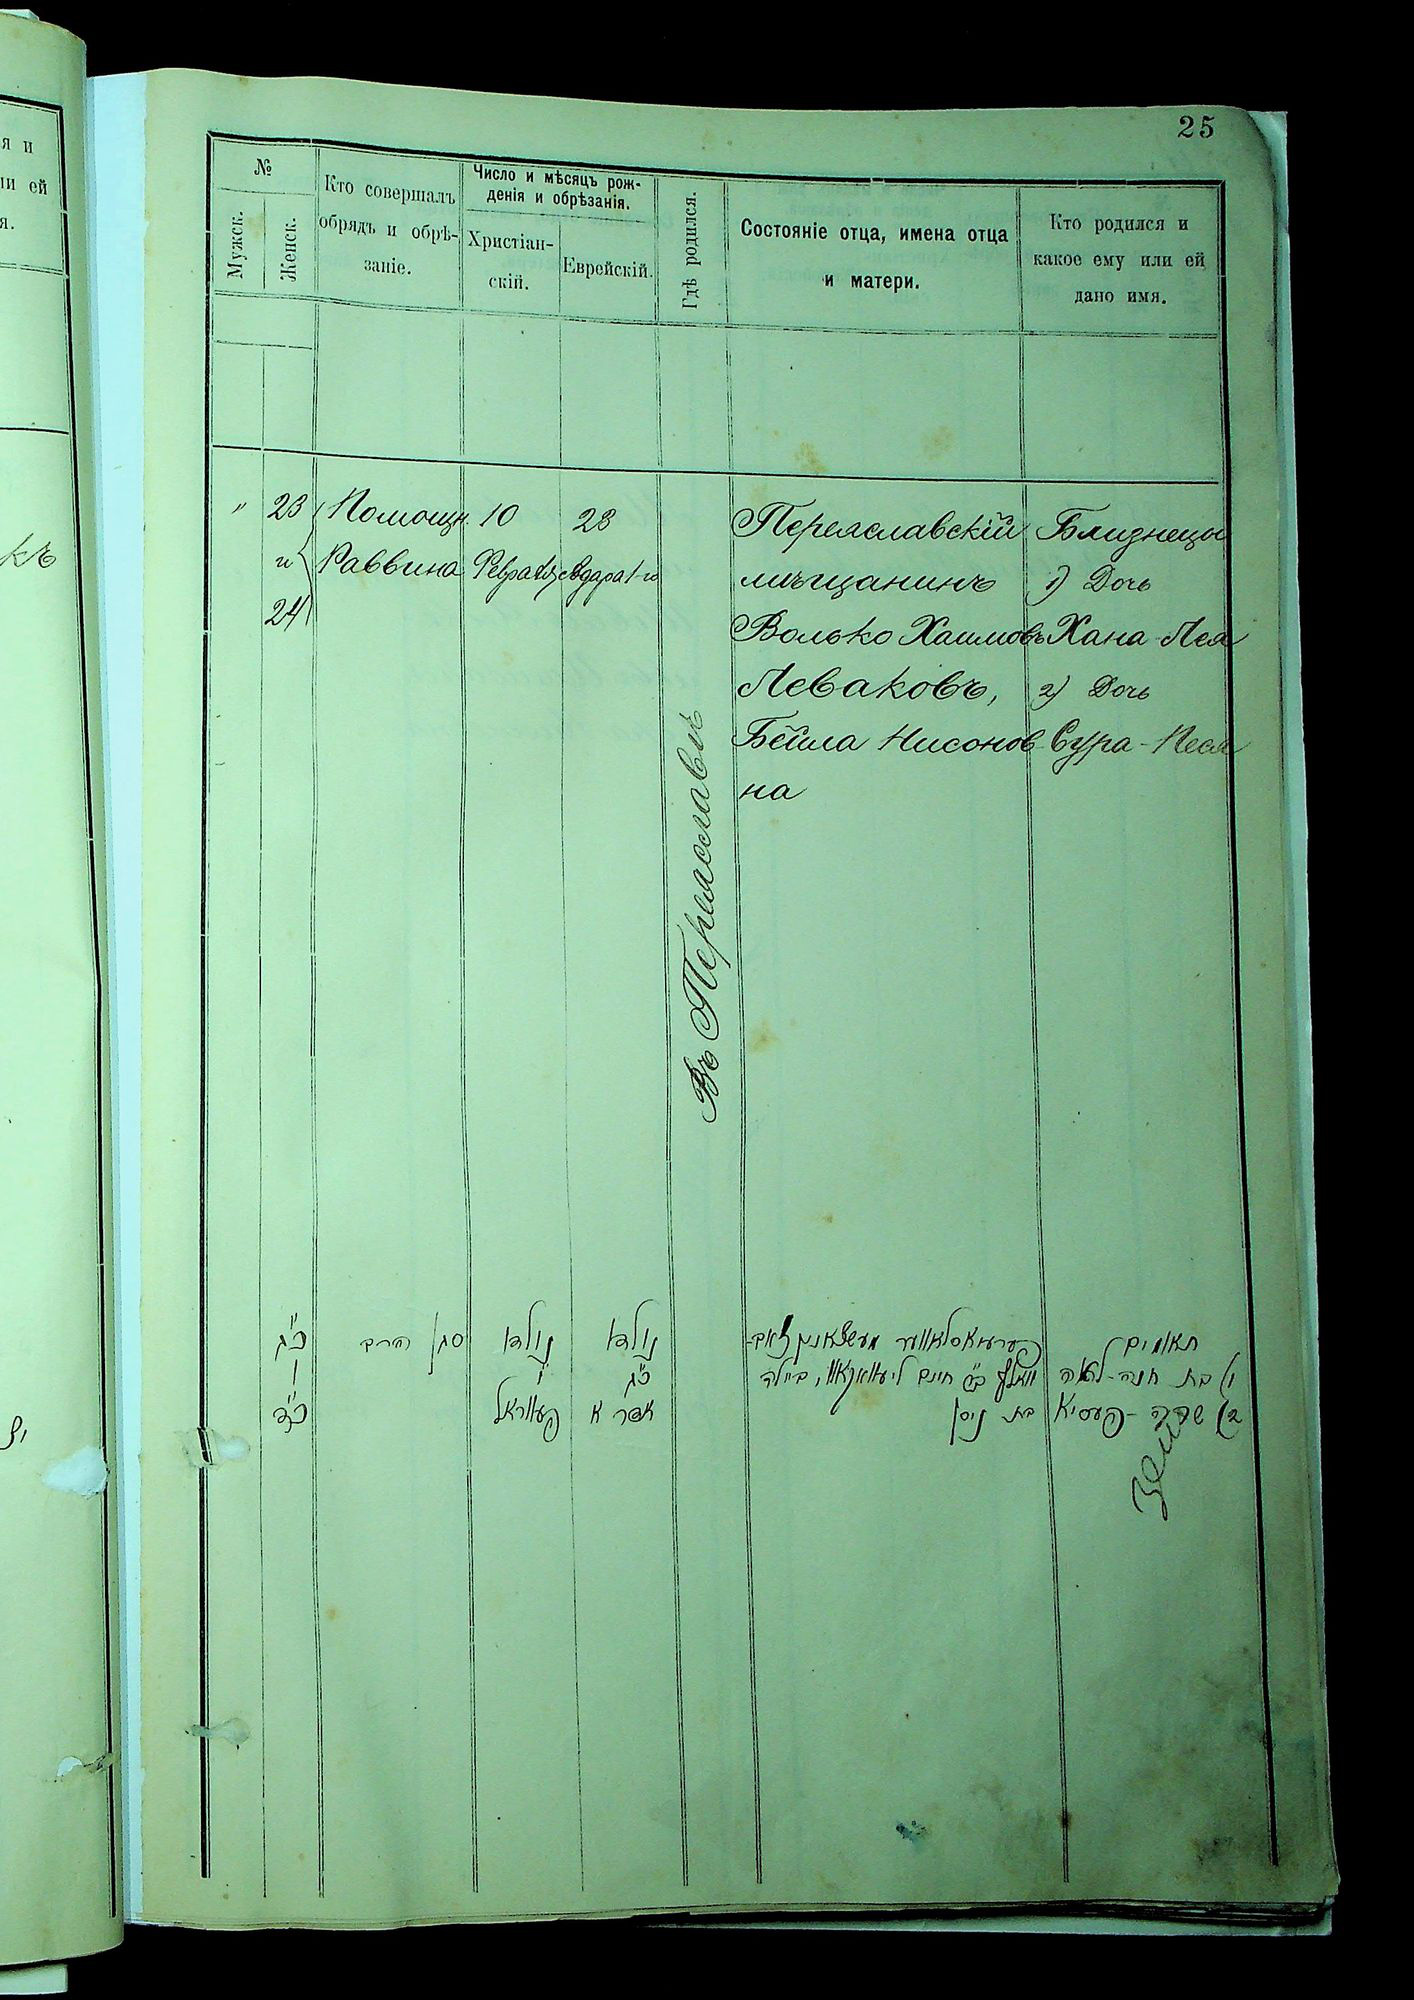 25
я и
ли ей
я.
№
Мужск.
Женск.
Кто совершалъ
обрядъ и обрѣ-
заніе.
Число и мѣсяцъ рож-
денія и обрѣзанія.
Христіан-
скій.
Еврейскій.
Гдѣ родился.
Состояніе отца, имена отца
и матери.
Кто родился и
какое ему или ей
дано имя.
къ
" 23 Помощн. 10 28 Переяславскій Близнецы
и Раввина Февраля Адара 1-го мѣщанинъ 1) Дочь
24 Волько Хаимовъ Хана-Лея
Леваковъ, 2) Дочь
Бейла Нисонов- Сура-Песя
на
Въ Переяславлѣ
כ״ג סגן הרב נולדו נולדו תאומים
ו י כ״ג בת חנה-לאה
כ״ד פעווראל אדר א בת ניסן 2) שרה-פעסיא